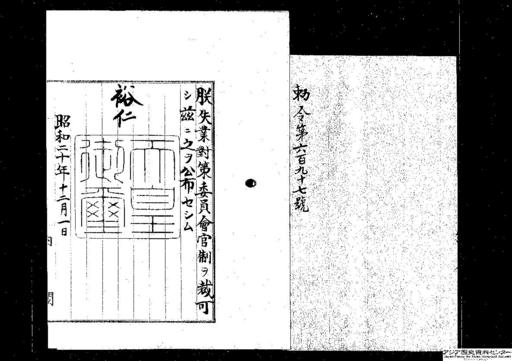 勅令第六百九十七號
朕失業對策委員會官制ヲ裁可
シ茲ニ之ヲ公布セシム
裕仁
天皇御璽
昭和二十年十二月一日
内閣
アジア歴史資料センター